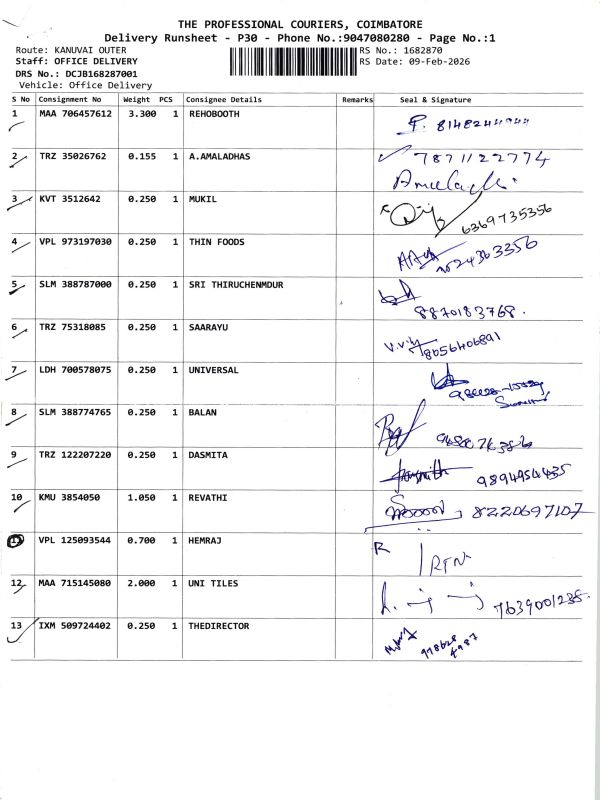 THE PROFESSIONAL COURIERS, COIMBATORE
Delivery Runsheet - P30 - Phone No.:9047080280 - Page No.:1
Route: KANUVAI OUTER
RS No.: 1682870
Staff: OFFICE DELIVERY
RS Date: 09-Feb-2026
DRS No.: DCJB168287001
Vehicle: Office Delivery
S No Consignment No Weight PCS Consignee Details Remarks Seal & Signature
1 MAA 706457612 3.300 1 REHOBOOTH
2 TRZ 35026762 0.155 1 A.AMALADHAS 7871122774
3 KVT 3512642 0.250 1 MUKIL 6369735356
4 VPL 973197030 0.250 1 THIN FOODS
5 SLM 388787000 0.250 1 SRI THIRUCHENMDUR 8870183768.
6 TRZ 75318085 0.250 1 SAARAYU 8056406891
7 LDH 700578075 0.250 1 UNIVERSAL
8 SLM 388774765 0.250 1 BALAN
9 TRZ 122207220 0.250 1 DASMITA 9894954435
10 KMU 3854050 1.050 1 REVATHI 8220697107
11 VPL 125093544 0.700 1 HEMRAJ R RTN
12 MAA 715145080 2.000 1 UNI TILES 7639001235.
13 IXM 509724402 0.250 1 THEDIRECTOR